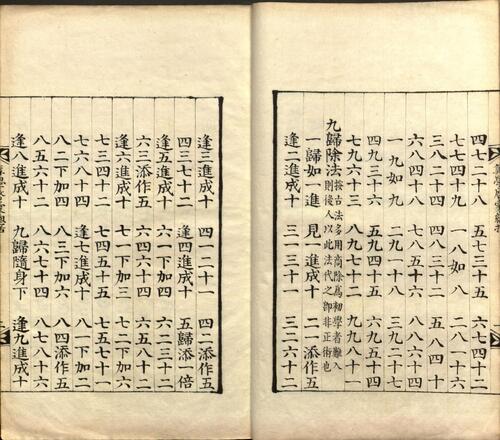 四七二十八 五七三十五 六七四十二
七七四十九 一八如八 二八一十六
三八二十四 四八三十二 五八四十
六八四十八 七八五十六 八八六十四
一九如九 二九一十八 三九二十七
四九三十六 五九四十五 六九五十四
七九六十三 八九七十二 九九八十一
九歸除法 按古法多用商除爲初學者難入
則後人以此法代之卽非正術也
一歸如一進 見一進成十 二一添作五
逢二進成十 三一三十一 三二六十二
逢三進成十 四一二十二 四二添作五
四三七十二 逢四進成十 五歸添一倍
逢五進成十 六一下加四 六二三十二
六三添作五 六四六十四 六五八十二
逢六進成十 七一下加三 七二下加六
七三四十二 七四五十五 七五七十一
七六八十四 逢七進成十 八一下加二
八二下加四 八三下加六 八四添作五
八五六十二 八六七十四 八七八十六
逢八進成十 九歸隨身下 逢九進成十